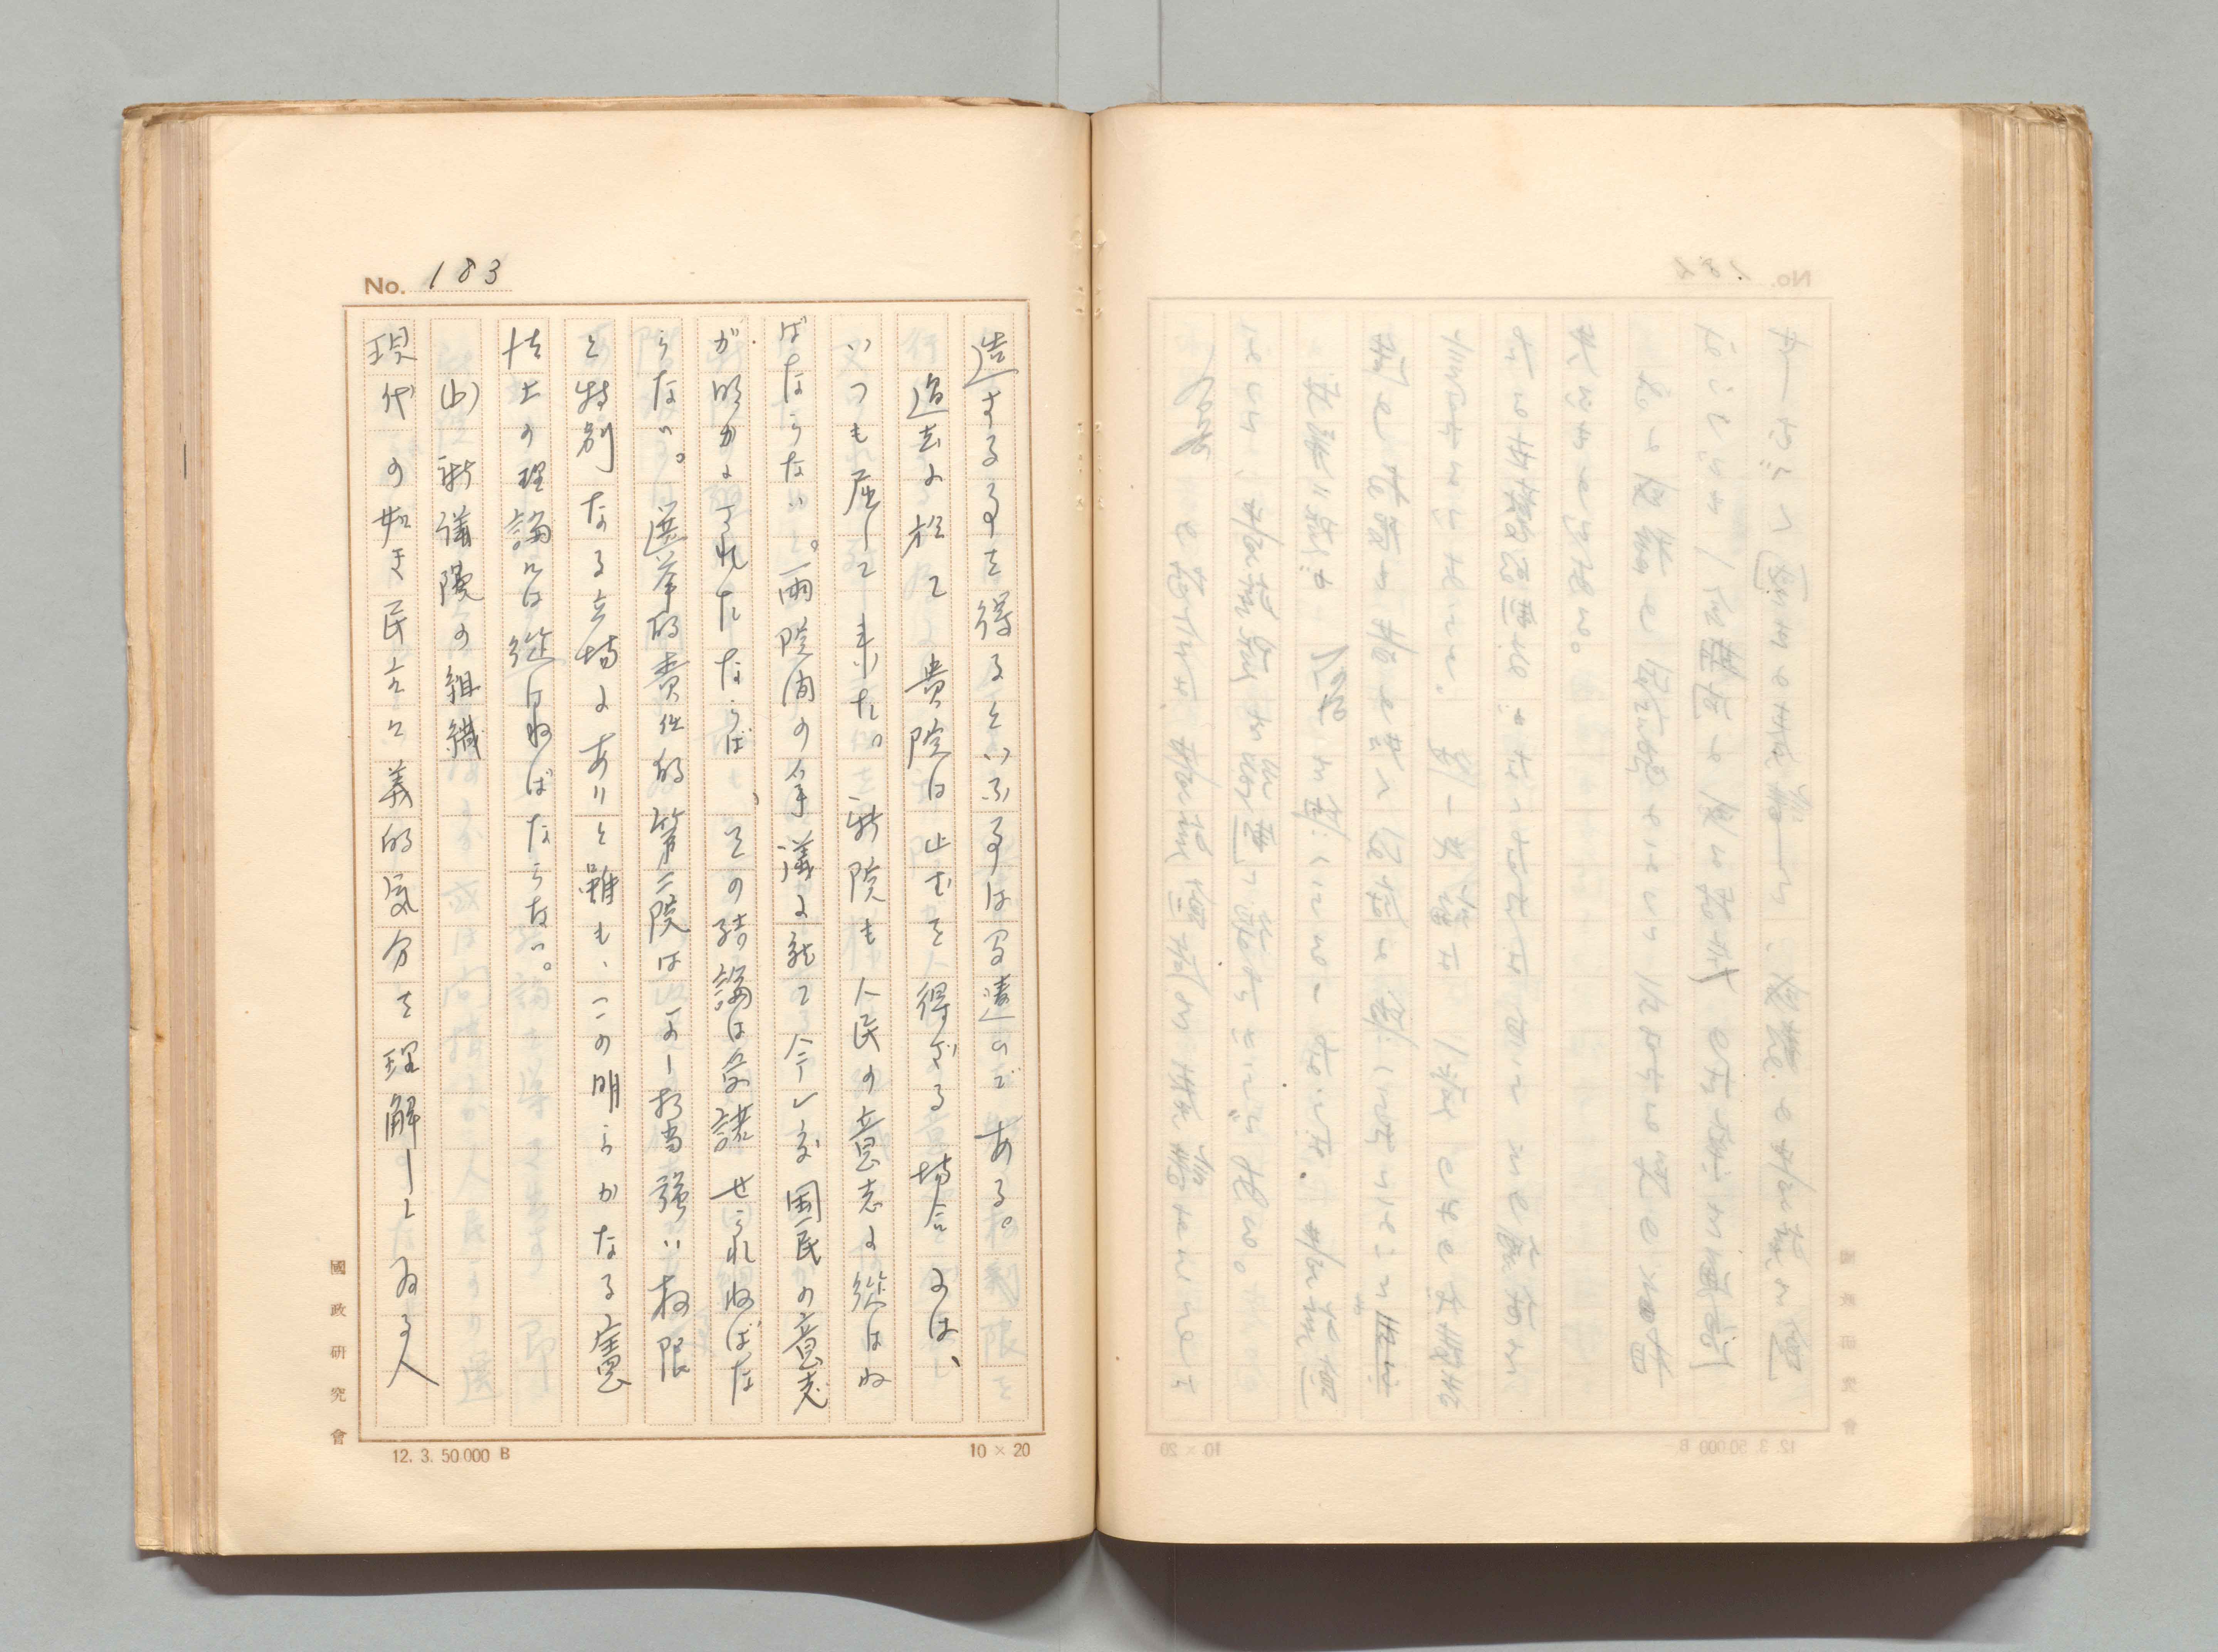 No. 183
造する事を得るといふ事は間違ひである。
過去に於て貴院は止むを得ざる場合には、
いつも屈して来た。新院も人民の意志に従はね
ばならない。両院間の争議に就て今一度国民の意志
が明かにされたならば、その結論は受諾せられねばな
らない。選挙的責任的第二院はよし相当強い権限
と特別なる立場にありと雖も、この明らかなる憲
法上の理論には従はねばならない。
新議院の組織
現代の如き民主々義的気分を理解してゐる人
國政研究會
12. 3. 50 000 B
10 × 20